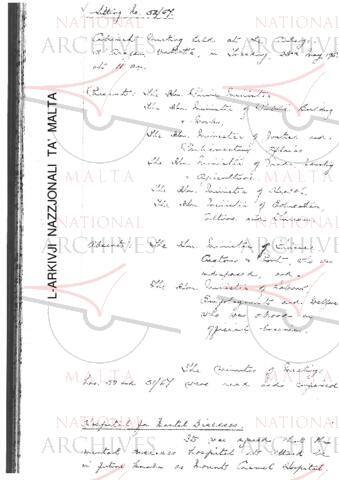 Sitting No. 52/67.
Cabinet Meeting held at the
Valletta, on Tuesday, May
at 11 am.
Present: The Hon. Prime Minister
The Hon. Minister of Public Building
& Works.
The Hon. Minister of Justice and
Parliamentary Affairs
The Hon. Minister of Trade, Industry
& Agriculture.
The Hon. Minister of Health.
The Hon. Minister of Education,
Culture and Tourism.
Absent: The Hon. Minister of Finance,
Customs & Port, who was
indisposed, and
The Hon. Minister of Labour
Employment and Welfare
who was abroad on
official business.
The Minutes of Meeting
Nos. 50 and 51/67 were read and confirmed
Hospital for Mental Diseases.
It was agreed that the
mental diseases hospital at Attard be
in future known as Mount Carmel Hospital.
L-ARKIVJI NAZZJONALI TA' MALTA
NATIONAL
ARCHIVES
MALTA